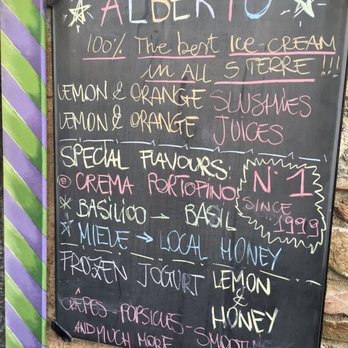 ALBERTO
100% The best ICE-CREAM
in ALL 5 TERRE!!!
LEMON & ORANGE SLUSHIES
LEMON & ORANGE JUICES
SPECIAL FLAVOURS:
CREMA PORTOFINO
* BASILICO → BASIL
* MIELE → LOCAL HONEY
N°1
SINCE
1999
FROZEN JOGURT LEMON
&
HONEY
CRÊPES - POPSICLES - SMOOTHI
AND MUCH MORE